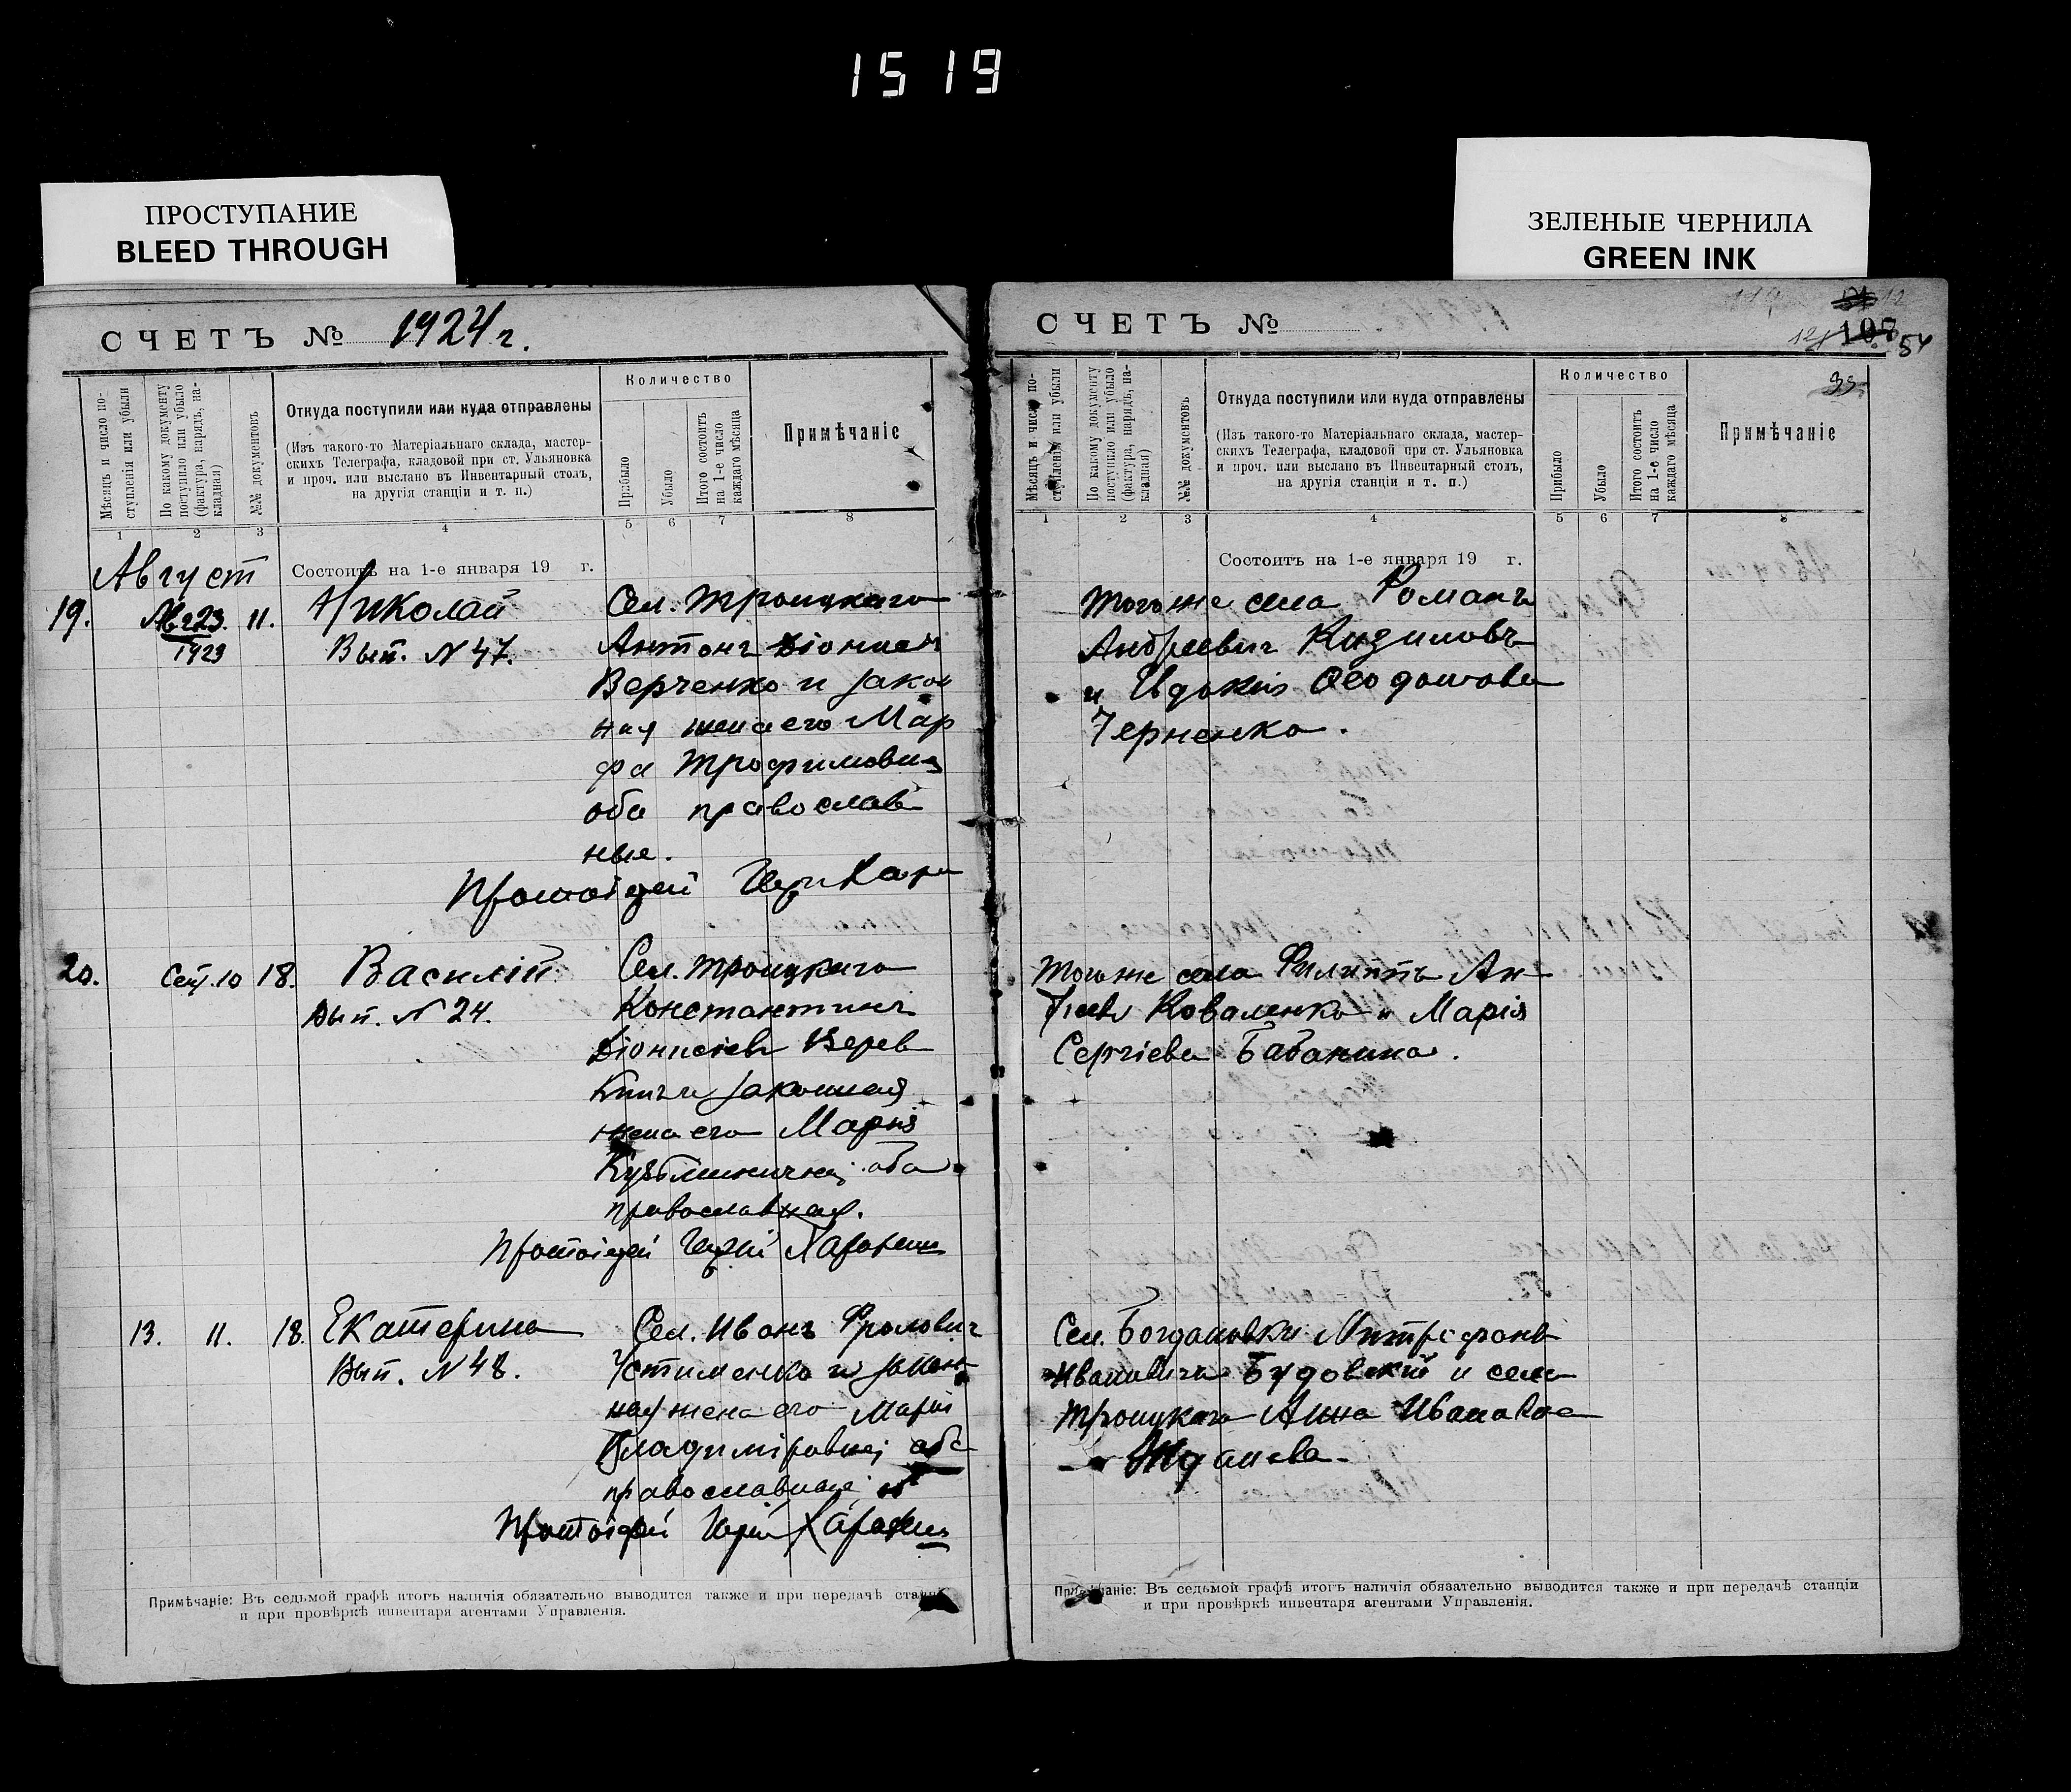 1519
ПРОСТУПАНИЕ
BLEED THROUGH
ЗЕЛЕНЫЕ ЧЕРНИЛА
GREEN INK
СЧЕТЪ № 1924 г.
Мѣсяцъ и число поступленія или убыли
По какому документу поступило или убыло (фактура, нарядъ, накладная)
№№ документовъ
Откуда поступили или куда отправлены
(Изъ такого-то Матеріальнаго склада, мастер-
скихъ Телеграфа, кладовой при ст. Ульяновка
и проч. или выслано въ Инвентарный столъ,
на другія станціи и т. п.)
Количество
Прибыло
Убыло
Итого состоитъ на 1-е число каждаго мѣсяца
Примѣчаніе
1 2 3 4 5 6 7 8
Август
Состоитъ на 1-е января 19 г.
19. 11. Николай Сел. Троицкаго
1923 Вып. N 47. Антонъ
Верченко и закон
ная жена его Мар
фа Трофимовна
оба православ
ные.
Протоіерей
20. Сент. 10 18. Василій Сел. Троицкаго
Вып. N 24. Константинъ
Діонисіевъ Верев
законная
жена его Марія
оба
православная.
Протоіерей
13. 11. 18. Екатерина Сел. Иванъ Фролович
Вып. N 48. Устименко и закон
ная жена его Марія
Владиміровна; оба
православные
Протоіерей
Примѣчаніе: Въ седьмой графѣ итогъ наличія обязательно выводится также и при передачѣ станціи
и при провѣркѣ инвентаря агентами Управленія.
СЧЕТЪ №
107 54
Мѣсяцъ и число поступленія или убыли
По какому документу поступило или убыло (фактура, нарядъ, накладная)
№№ документовъ
Откуда поступили или куда отправлены
(Изъ такого-то Матеріальнаго склада, мастер-
скихъ Телеграфа, кладовой при ст. Ульяновка
и проч. или выслано въ Инвентарный столъ,
на другія станціи и т. п.)
Количество
Прибыло
Убыло
Итого состоитъ на 1-е число каждаго мѣсяца
Примѣчаніе
1 2 3 4 5 6 7 8
Состоитъ на 1-е января 19 г.
Того же села Романъ
Андреевич Кизиловъ
и Евдокія Ѳеодотова
Черненко.
Того же села Филиппъ
Коваленко и Марія
Сергіева Бабанина.
Сел. Богдановки Митрофанъ
Ивановичъ Будовскій и села
Троицкаго Анна Иванова
Жданова.
Примѣчаніе: Въ седьмой графѣ итогъ наличія обязательно выводится также и при передачѣ станціи
и при провѣркѣ инвентаря агентами Управленія.